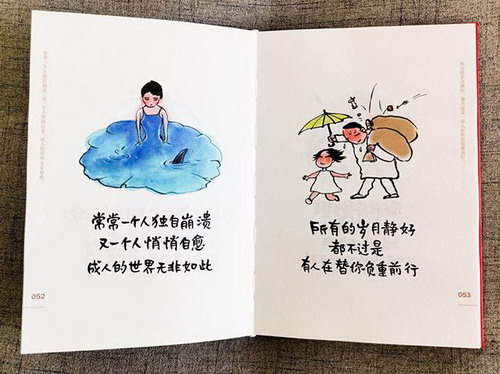 常常一个人独自崩溃
又一个人悄悄自愈
成人的世界无非如此
052
所有的岁月静好
都不过是
有人在替你负重前行
053